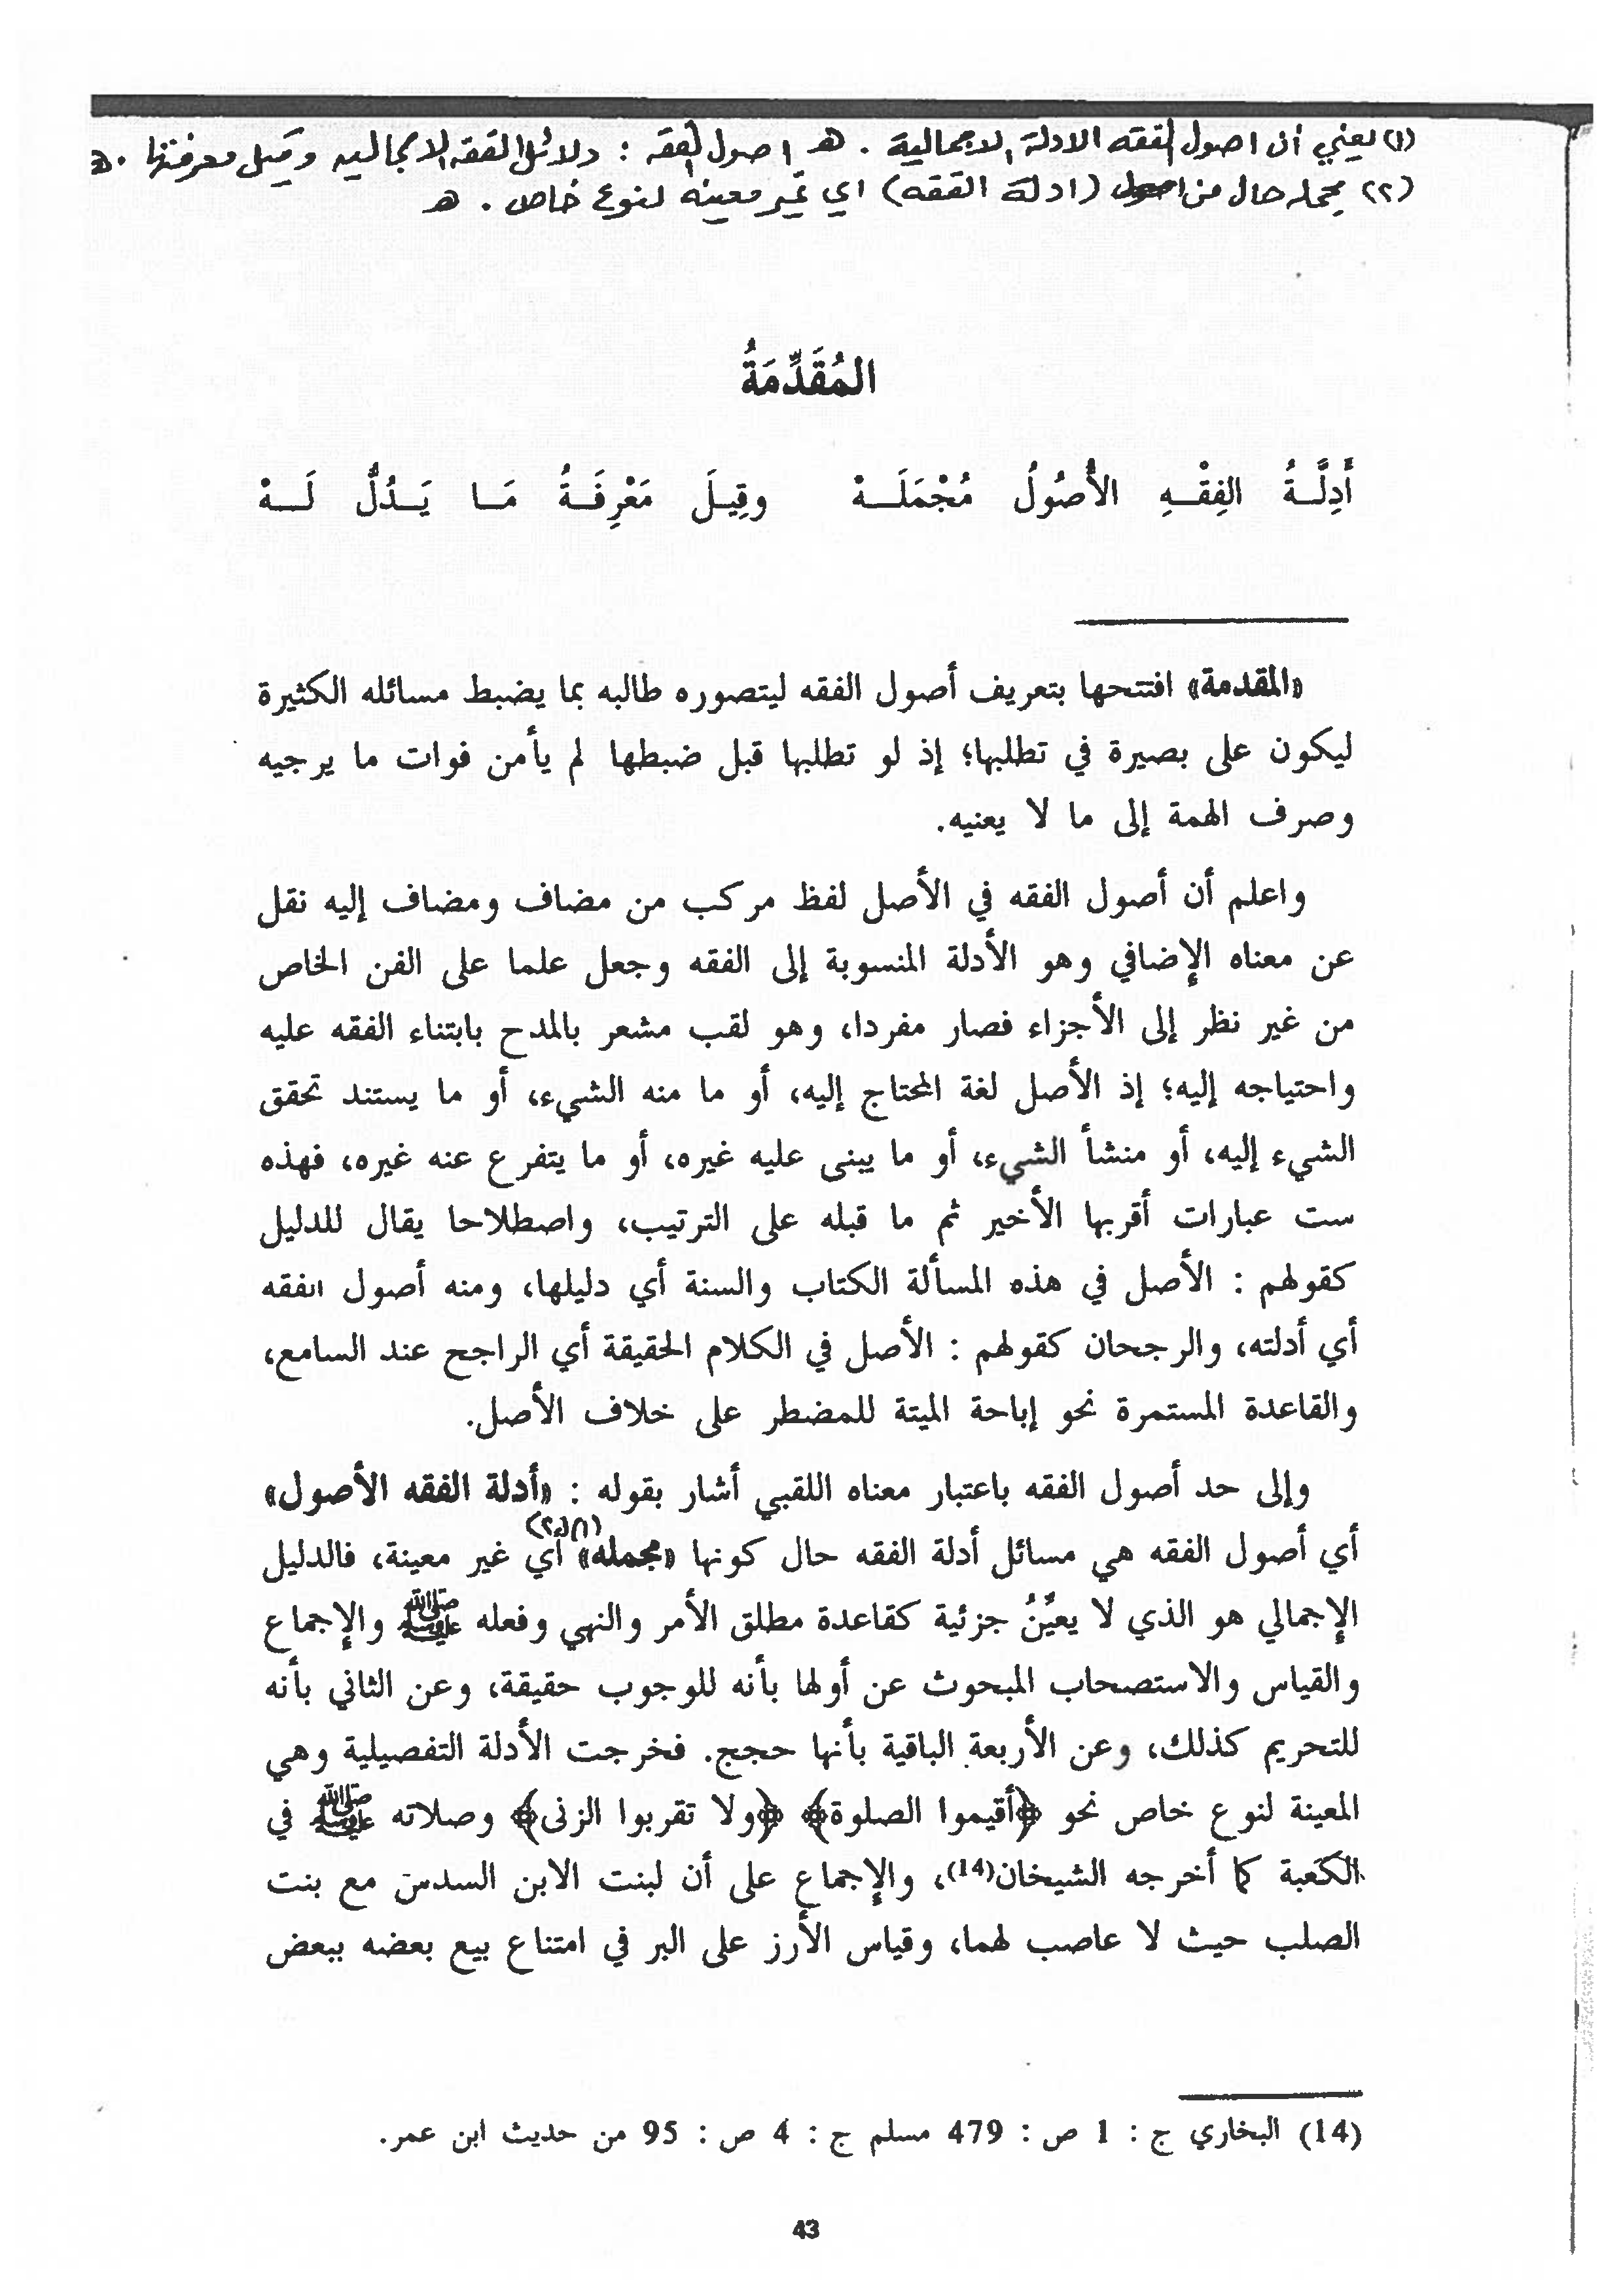 (١) يعني أن اصول الفقه الادلة الاجمالية . هـ اصول الفقه : دلائل الفقه الاجماليه وقيل معرفتها . هـ
(٢) مجمله حال من (ادلة الفقه) اي غير معينه لنوع خاص . هـ
المُقَدِّمَةُ
أَدِلَّـةُ الفِقْـهِ الأُصُولُ مُجْمَلَـهْ وقِيـلَ مَعْرِفَـةُ مَـا يَـدُلُّ لَـهْ
«المقدمة» افتتحها بتعريف أصول الفقه ليتصوره طالبه بما يضبط مسائله الكثيرة
ليكون على بصيرة في تطلبها؛ إذ لو تطلبها قبل ضبطها لم يأمن فوات ما يرجيه
وصرف الهمة إلى ما لا يعنيه.
واعلم أن أصول الفقه في الأصل لفظ مركب من مضاف ومضاف إليه نقل
عن معناه الإضافي وهو الأدلة المنسوبة إلى الفقه وجعل علما على الفن الخاص
من غير نظر إلى الأجزاء فصار مفردا، وهو لقب مشعر بالمدح بابتناء الفقه عليه
واحتياجه إليه؛ إذ الأصل لغة المحتاج إليه، أو ما منه الشيء، أو ما يستند تحقق
الشيء إليه، أو منشأ الشيء، أو ما يبنى عليه غيره، أو ما يتفرع عنه غيره، فهذه
ست عبارات أقربها الأخير ثم ما قبله على الترتيب، واصطلاحا يقال للدليل
كقولهم : الأصل في هذه المسألة الكتاب والسنة أي دليلها، ومنه أصول الفقه
أي أدلته، والرجحان كقولهم : الأصل في الكلام الحقيقة أي الراجح عند السامع،
والقاعدة المستمرة نحو إباحة الميتة للمضطر على خلاف الأصل.
وإلى حد أصول الفقه باعتبار معناه اللقبي أشار بقوله : «أدلة الفقه الأصول»
أي أصول الفقه هي مسائل أدلة الفقه حال كونها «مجمله» (١)(٢) أي غير معينة، فالدليل
الإجمالي هو الذي لا يعيِّنُ جزئية كقاعدة مطلق الأمر والنهي وفعله ﷺ والإجماع
والقياس والاستصحاب المبحوث عن أولها بأنه للوجوب حقيقة، وعن الثاني بأنه
للتحريم كذلك، وعن الأربعة الباقية بأنها حجج. فخرجت الأدلة التفصيلية وهي
المعينة لنوع خاص نحو ﴿أقيموا الصلوة﴾ ﴿ولا تقربوا الزنى﴾ وصلاته ﷺ في
الكعبة كما أخرجه الشيخان(14)، والإجماع على أن لبنت الابن السدس مع بنت
الصلب حيث لا عاصب لهما، وقياس الأرز على البر في امتناع بيع بعضه ببعض
(14) البخاري ج : 1 ص : 479 مسلم ج : 4 ص : 95 من حديث ابن عمر.
43